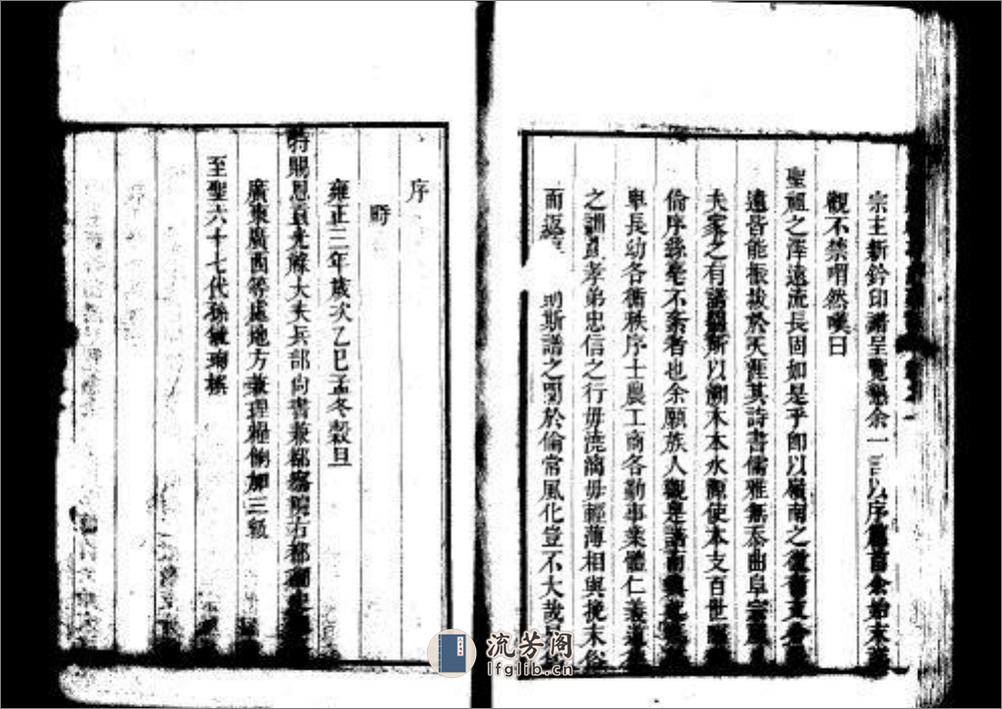 宗主新鈐印譜呈覽懇余一言以序篇首余始末
觀不禁喟然嘆曰
聖祖之澤遠流長固如是乎即以嶺南之
遠皆能振拔於天涯其詩書儒雅無忝曲阜宗
夫家之有譜所以溯木本水源使本支百世
倫序絲毫不紊者也余願族人觀是譜
卑長幼各循秩序士農工商各勤事業體仁義
之訓孝弟忠信之行毋澆漓毋輕薄相與挽末俗
而 則斯譜之關於倫常風化豈不大哉
序
時
雍正三年歲次乙巳孟冬穀旦
特賜恩貢光祿大夫兵部尚書兼都察院右都
廣東廣西等處地方兼理糧餉加三級
至聖六十七代孫毓珣撰
流芳阁
lfglib.cn